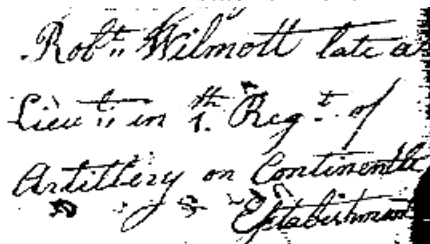 Robt. Wilmott late a
Lieut. in 1th. Regt. of
Artillery on Continentle
Establishment